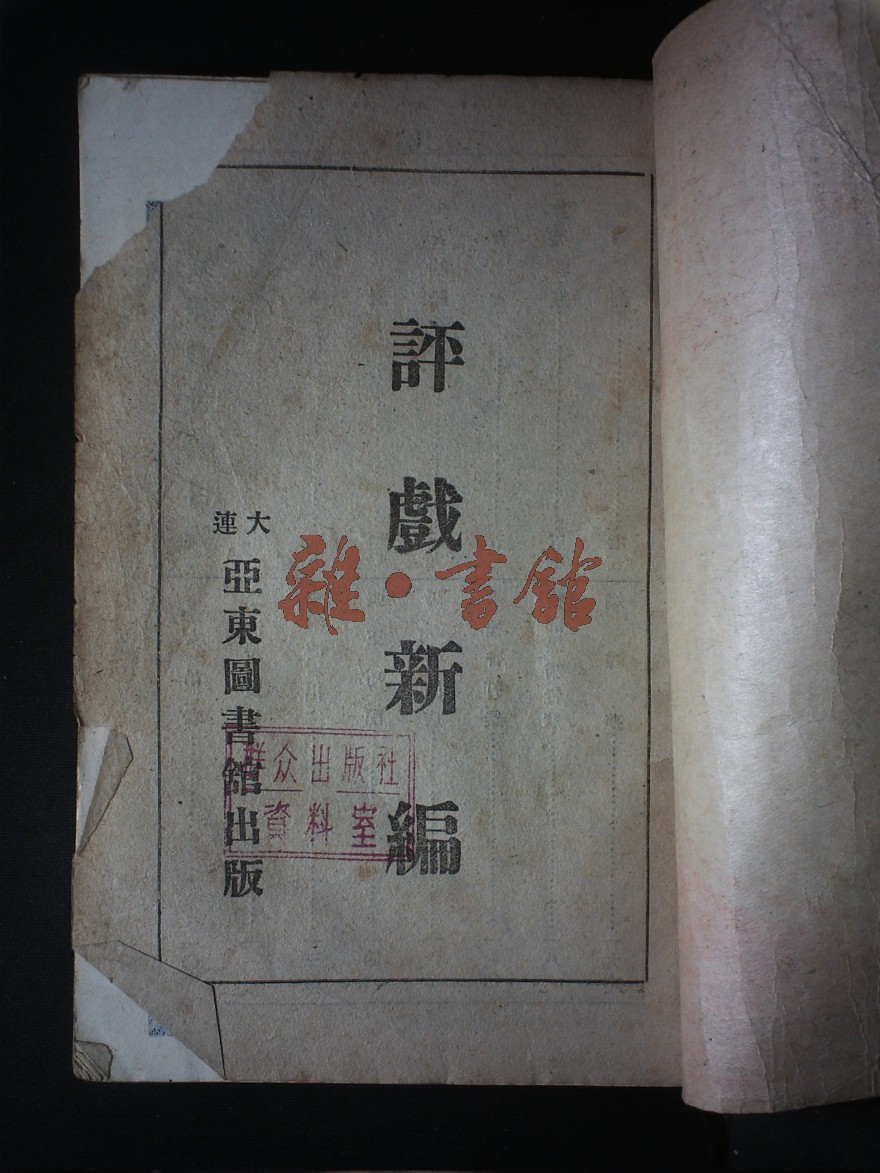 評戲新編
大連
亞東圖書館出版
群众出版社
資料室
雜·書館